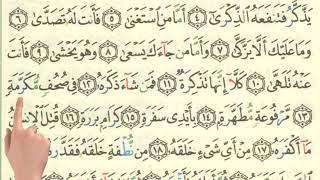 يَذَّكَّرُ فَتَنفَعَهُ ٱلذِّكْرَىٰٓ ٤ أَمَّا مَنِ ٱسْتَغْنَىٰ ٥ فَأَنتَ لَهُۥ تَصَدَّىٰ ٦
وَمَا عَلَيْكَ أَلَّا يَزَّكَّىٰ ٧ وَأَمَّا مَن جَآءَكَ يَسْعَىٰ ٨ وَهُوَ يَخْشَىٰ ٩ فَأَنتَ
عَنْهُ تَلَهَّىٰ ١٠ كَلَّآ إِنَّهَا تَذْكِرَةٌ ١١ فَمَن شَآءَ ذَكَرَهُۥ ١٢ فِى صُحُفٍ مُّكَرَّمَةٍ
١٣ مَّرْفُوعَةٍ مُّطَهَّرَةٍۭ ١٤ بِأَيْدِى سَفَرَةٍ ١٥ كِرَامٍۭ بَرَرَةٍ ١٦ قُتِلَ ٱلْإِنسَٰنُ
مَآ أَكْفَرَهُۥ ١٧ مِنْ أَىِّ شَىْءٍ خَلَقَهُۥ ١٨ مِن نُّطْفَةٍ خَلَقَهُۥ فَقَدَّرَهُۥ